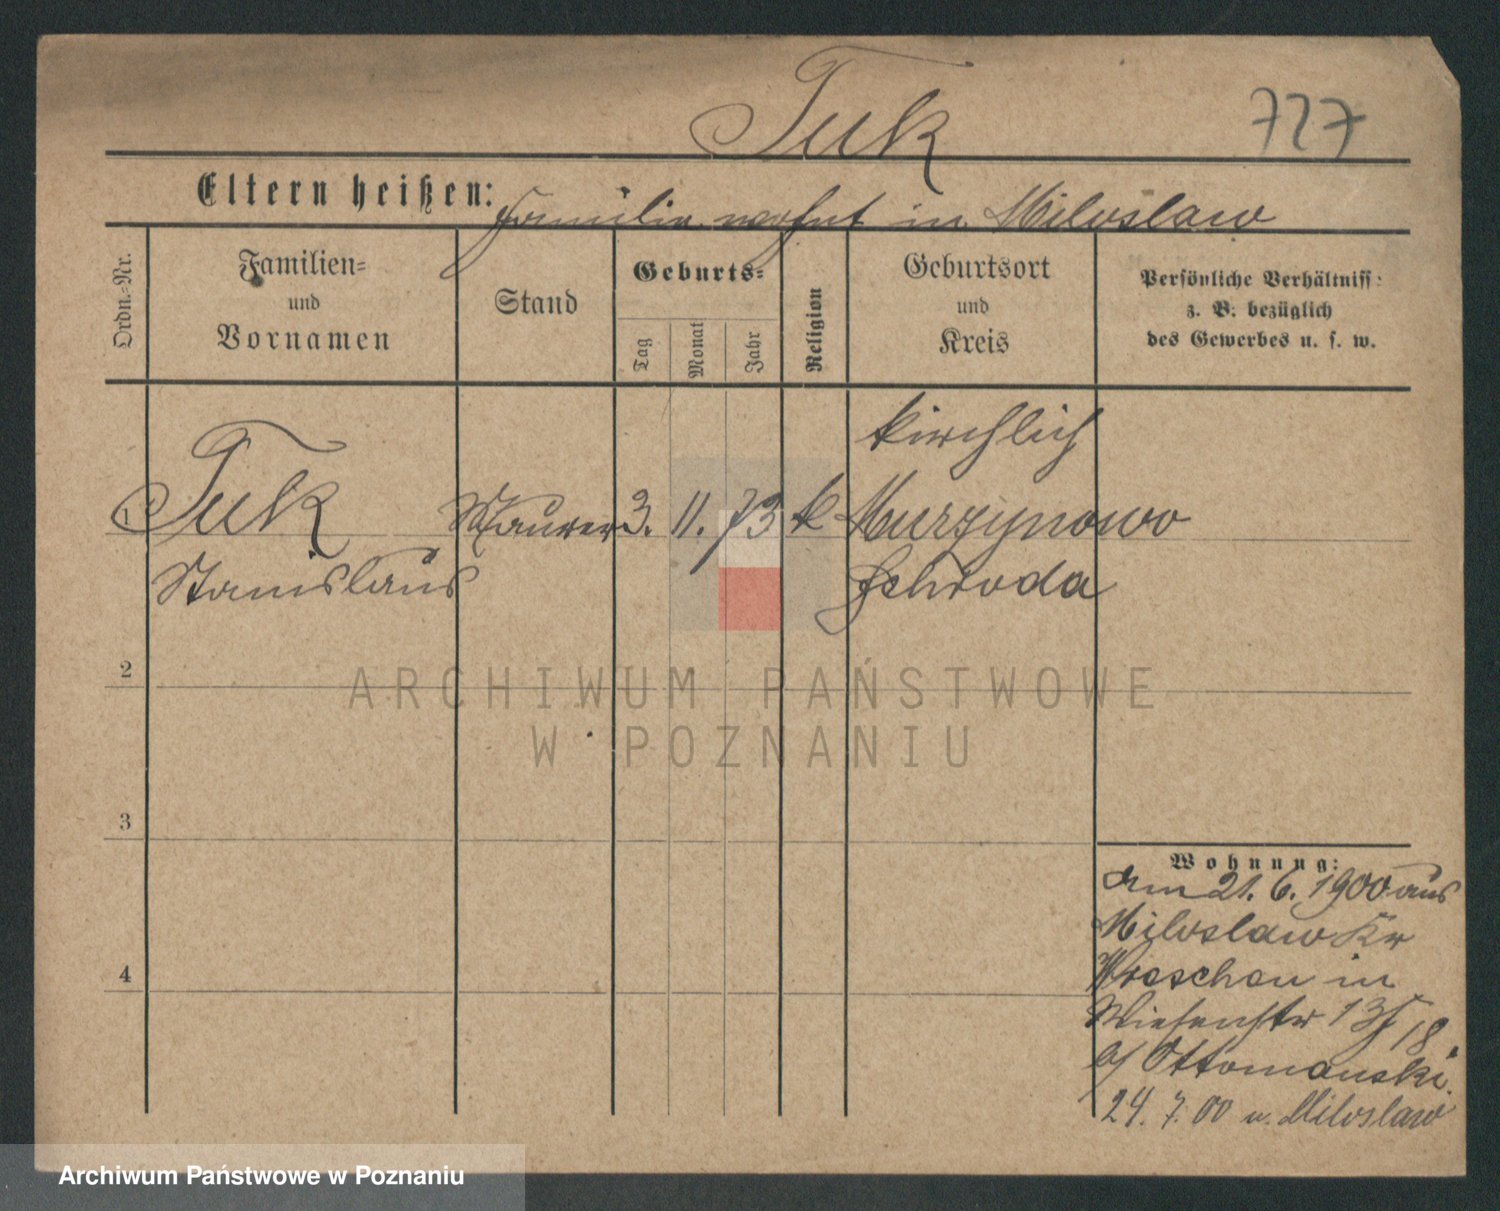 Tuk
727
Eltern heißen: Familie wohnt in Miloslaw
Ordn.-Nr.
Familien-
und
Vornamen
Stand
Geburts-
Tag
Monat
Jahr
Religion
Geburtsort
und
Kreis
Persönliche Verhältniss:
z. B. bezüglich
des Gewerbes u. s. w.
kirchlich
1 Tuk Maurer 3. 11. 73 k Murzynowo
Stanislaus Schroda
2
3
4
Wohnung:
Am 21. 6. 1900 aus
Miloslaw Kr
Wreschen in
Wiesenstr 13 18
b/ Ottomanski.
24. 7. 00 n. Miloslaw
ARCHIWUM PAŃSTWOWE
W POZNANIU
Archiwum Państwowe w Poznaniu